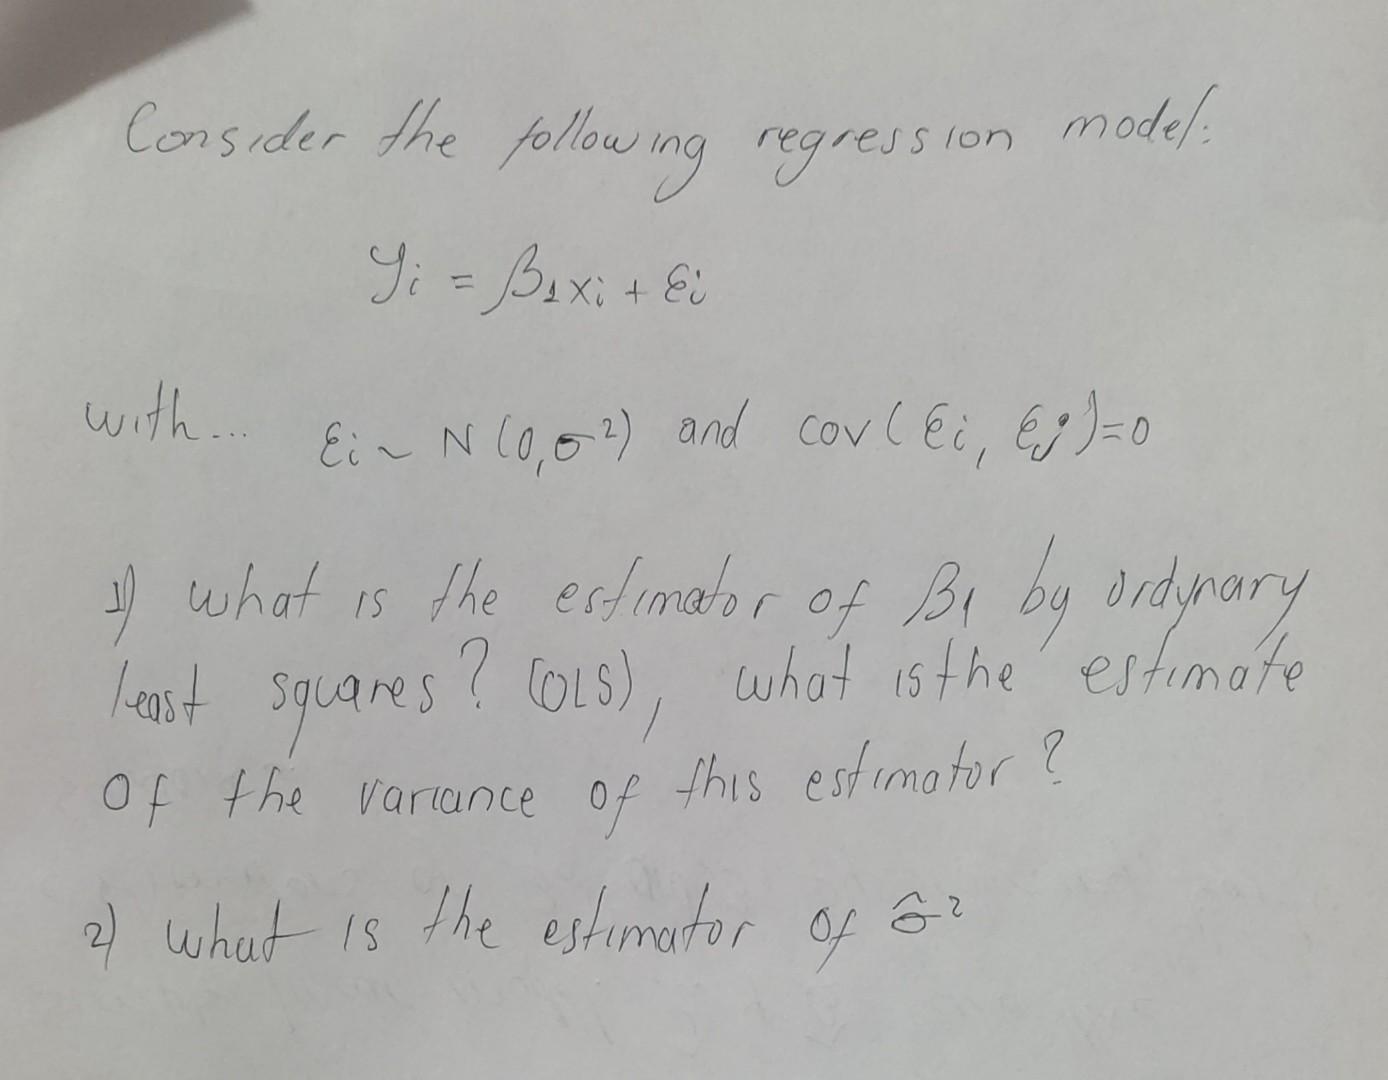 Consider the following regression model:
yi = β1xi + εi
with... εi ~ N(0,σ²) and cov(εi, εj)=0
1) what is the estimator of β1 by ordynary
least squares? (OLS), what is the estimate
Of the variance of this estimator?
2) what is the estimator of σ̂²